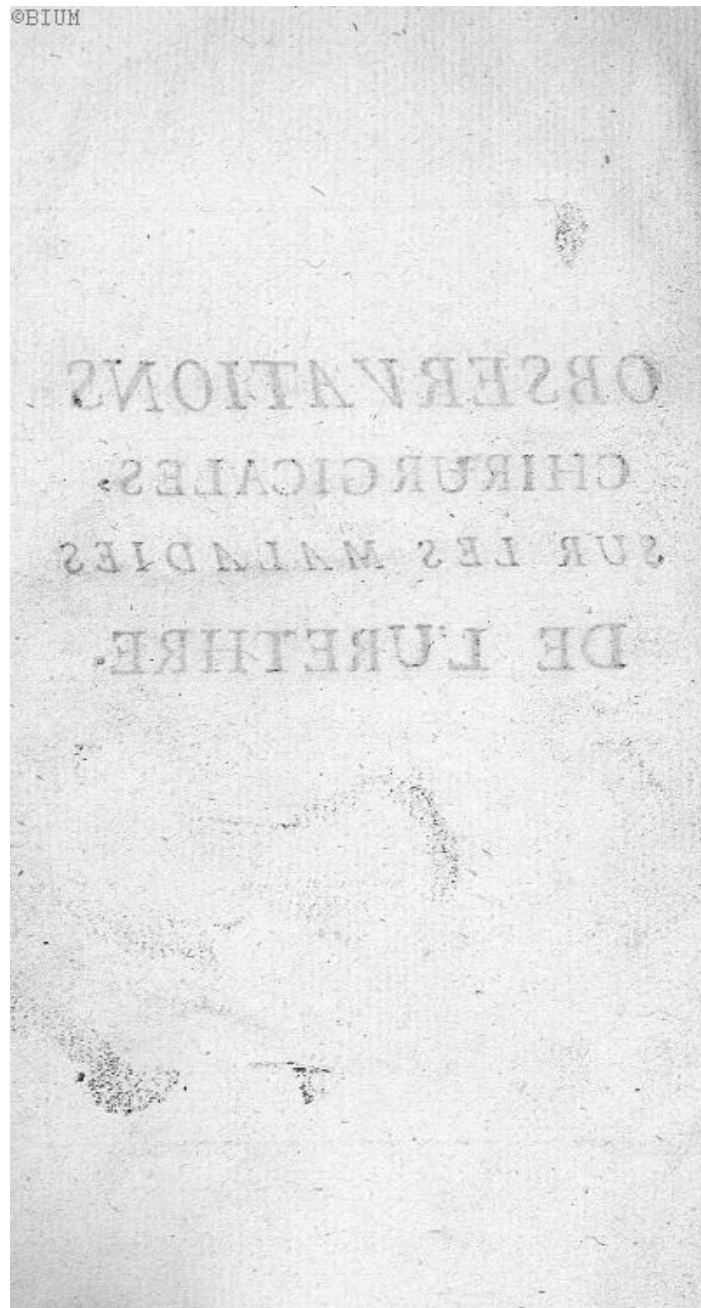 ©BIUM
OBSERVATIONS
CHIRURGICALES,
SUR LES MALADIES
DE L'URETHRE.